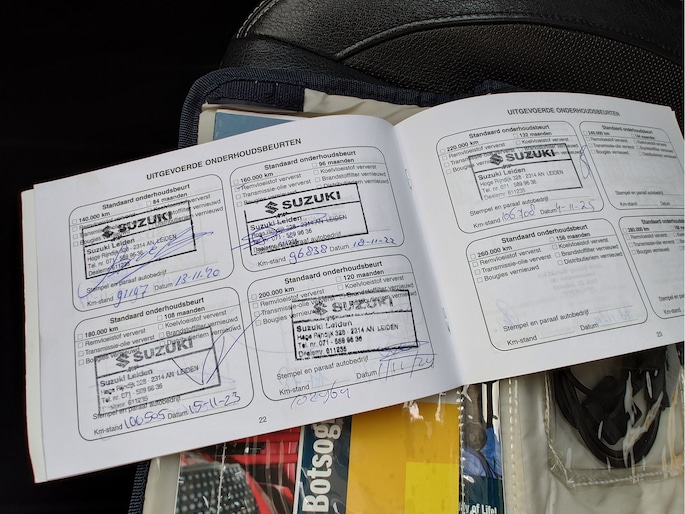 UITGEVOERDE ONDERHOUDSBEURTEN
Standaard onderhoudsbeurt
140.000 km
84 maanden
Remvloeistof ververst
Koelvloeistof ververst
Bougies
SUZUKI
Suzuki Leiden
2314 AN LEIDEN
Tel. nr. 071 - 589 96 36
Dealernr. 611235
Stempel en paraaf autobedrijf
Km-stand 91197 Datum 13-11-20
Standaard onderhoudsbeurt
160.000 km
96 maanden
Remvloeistof ververst
Koelvloeistof ververst
Brandstoffilter vernieuwd
SUZUKI
Suzuki Leiden
2314 AN LEIDEN
071 - 589 96 36
611235
paraaf autobedrijf
Km-stand 96838 Datum
Standaard onderhoudsbeurt
180.000 km
108 maanden
Remvloeistof ververst
Koelvloeistof ververst
Transmissie-olie ververst
Brandstoffilter vernieuwd
SUZUKI
Suzuki Leiden
Hoge Rijndijk 328 - 2314 AN LEIDEN
Tel. nr. 071 - 589 96 36
Dealernr. 611235
Stempel en paraaf autobedrijf
Km-stand 100505 Datum 15-11-23
Standaard onderhoudsbeurt
200.000 km
120 maanden
Remvloeistof ververst
Koelvloeistof ververst
Transmissie-olie
Bougies
SUZUKI
Suzuki Leiden
Hoge Rijndijk 328 - 2314 AN LEIDEN
Tel. nr. 071 - 589 96 36
Dealernr. 611235
Stempel en paraaf autobedrijf
Km-stand Datum 1/11/24
22
UITGEVOERDE ONDERHOUDSBEURTEN
Standaard onderhoudsbeurt
220.000 km
132 maanden
Remvloeistof ververst
Koelvloeistof ververst
SUZUKI
Suzuki Leiden
Hoge Rijndijk 328 - 2314 AN LEIDEN
Tel. nr. 071 - 589 96 36
Dealernr. 611235
Stempel en paraaf autobedrijf
Km-stand 106306 Datum 4-11-25
Standaard onderhoudsbeurt
240.000 km
Remvloeistof ververst
Transmissie-olie ververst
Bougies vernieuwd
Standaard onderhoudsbeurt
260.000 km
156 maanden
Remvloeistof ververst
Koelvloeistof ververst
Transmissie-olie ververst
Brandstoffilter vernieuwd
Bougies vernieuwd
Distributieriem vernieuwd
Stempel en paraaf autobedrijf
Km-stand Datum
Standaard
280.000 km
Stempel en
Km-stand
23
Botsog
of Life!